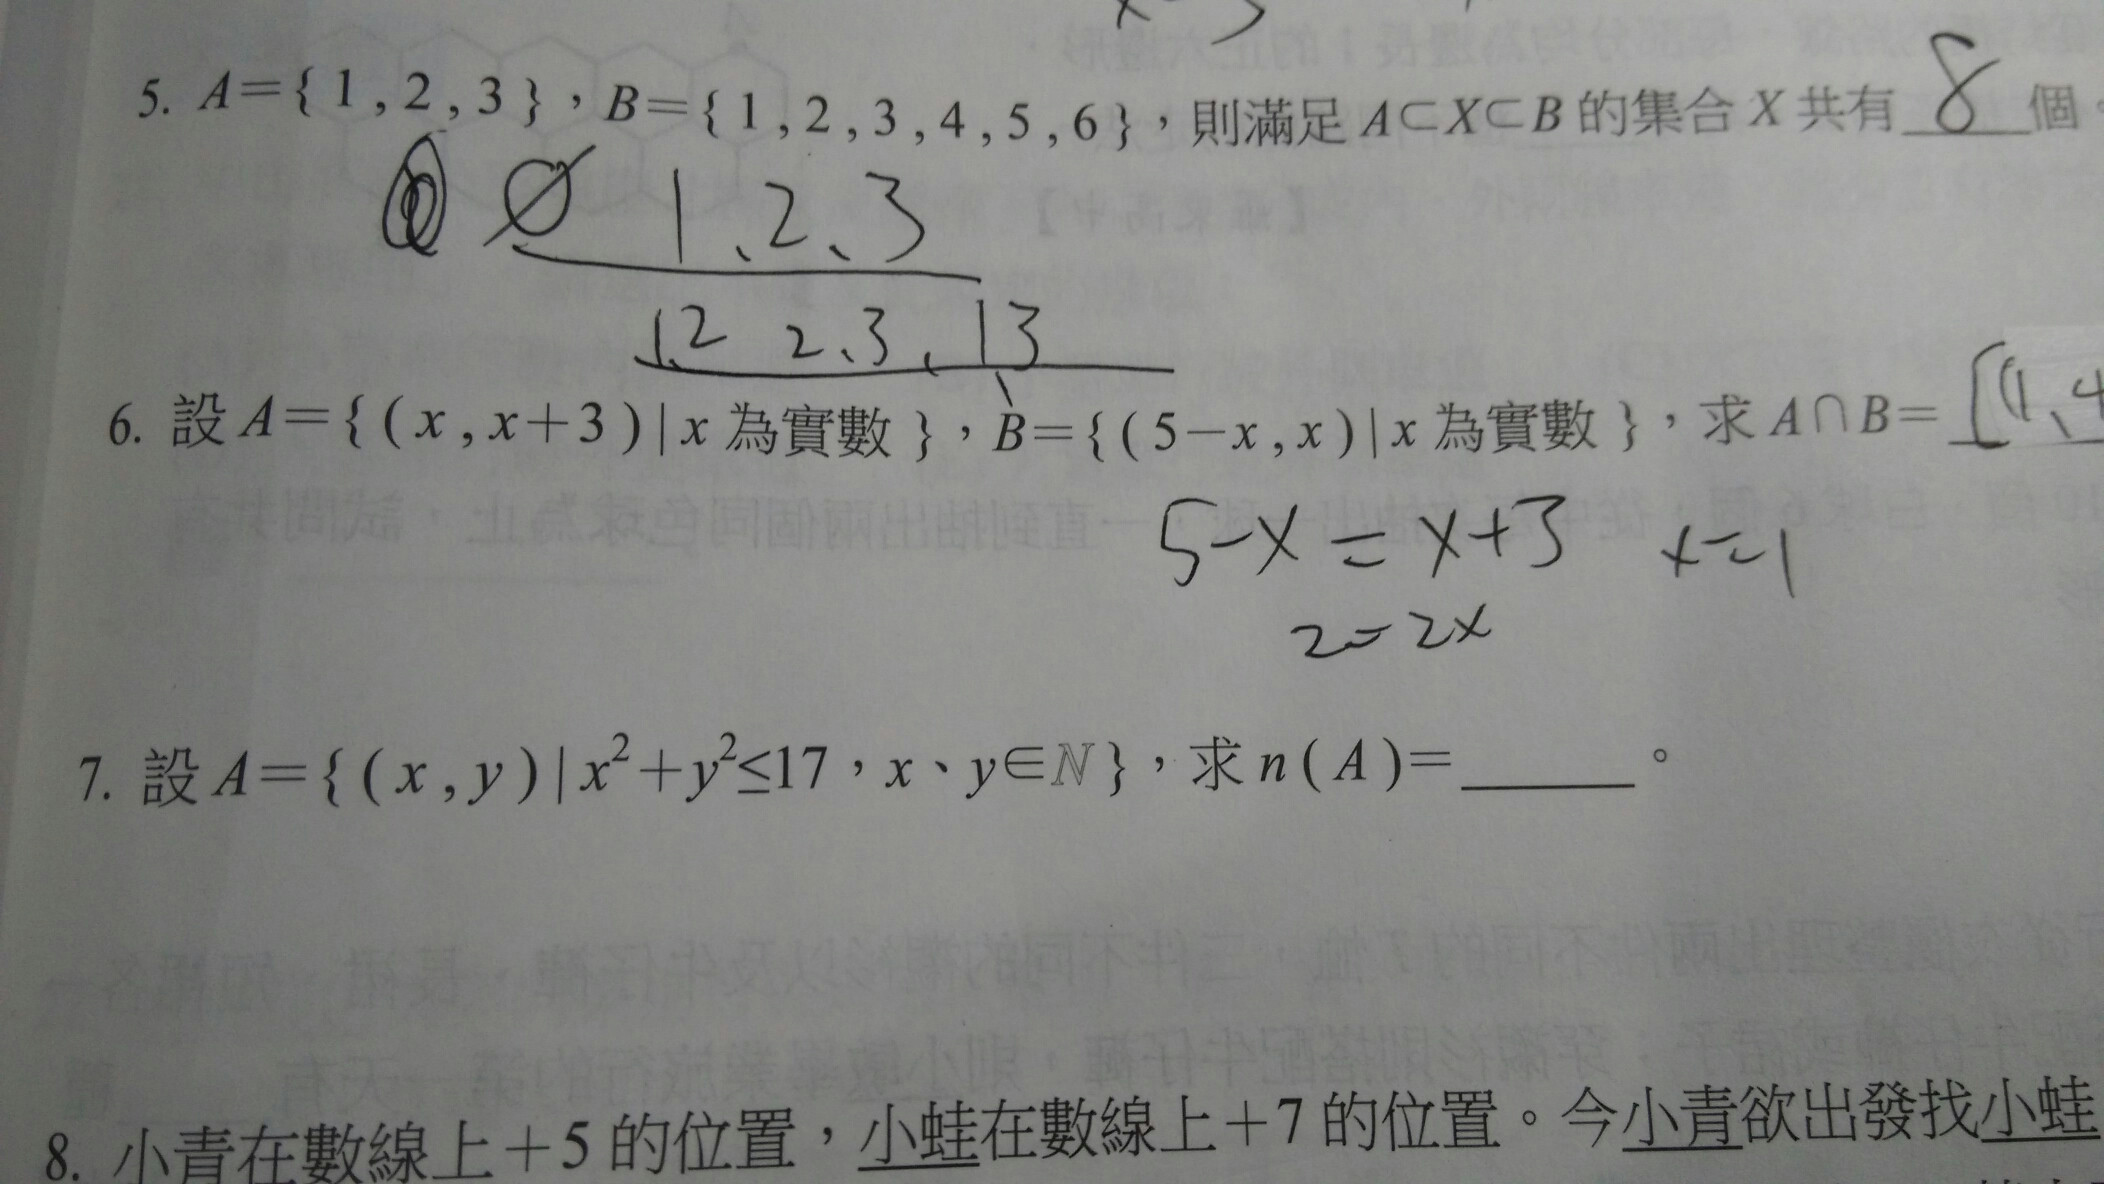 5. A={1,2,3}，B={1,2,3,4,5,6}，則滿足A⊂X⊂B的集合X共有 8 個。
∅ 1、2、3
1、2 2、3、13
6. 設A={(x,x+3)|x為實數}，B={(5−x,x)|x為實數}，求A∩B= [(1、4
5−x=x+3 x=1
2=2x
7. 設A={(x,y)|x²+y²≤17，x、y∈ℕ}，求n(A)=______。
8. 小青在數線上+5的位置，小蛙在數線上+7的位置。今小青欲出發找小蛙